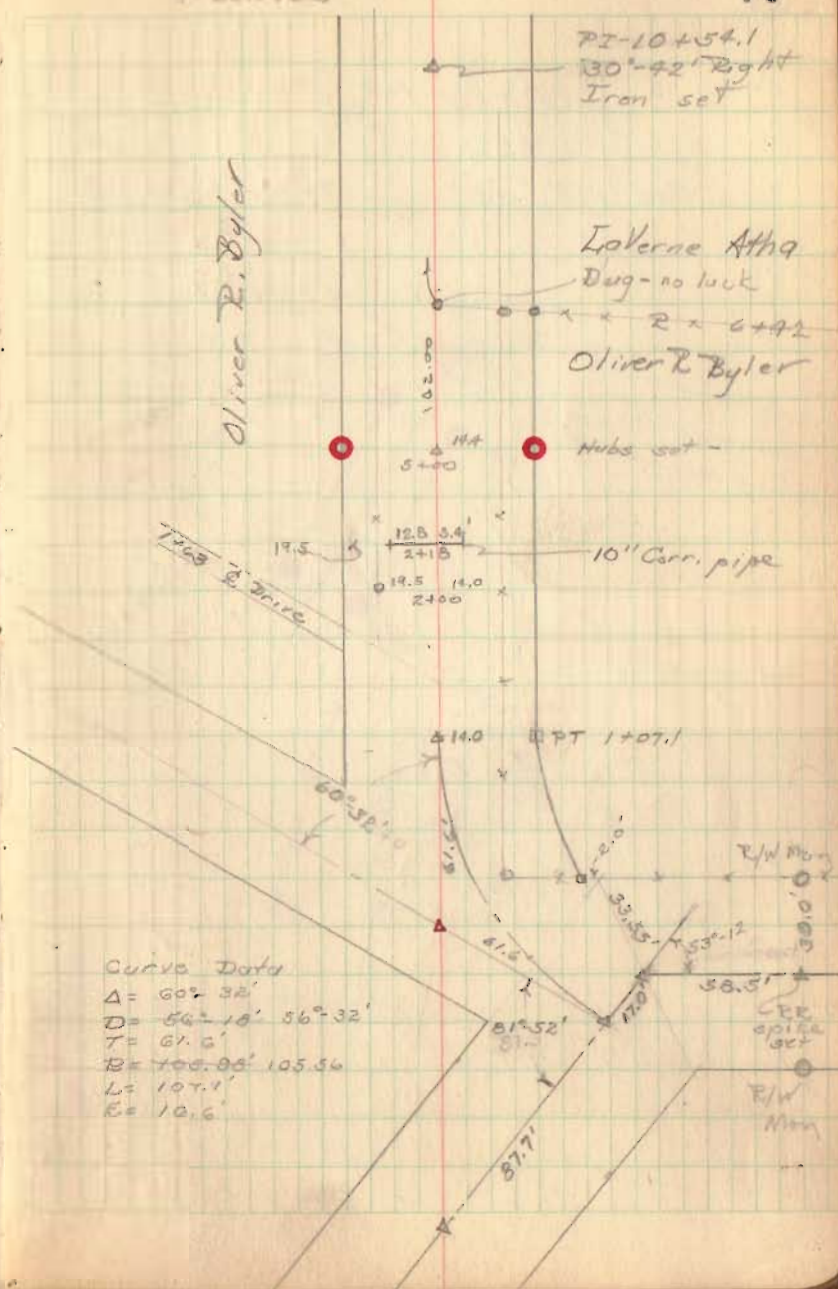 PI-10+54.1
30°-42' Right
Iron set
Oliver R. Byler
LaVerne Atha
Dug-no luck
R 6+42
Oliver R Byler
102.00
14.4
5+00
Hubs set -
12.8 3.4'
2+18
19.5
10" Corr. pipe
19.5 14.0
2+00
1+68 ℄ Drive
14.0
PT 1+07.1
60°-32'
61.6'
2.0'
R/W Mon
33.55'
53°-12
30.0'
61.6'
17.0'
58.5'
RR
spike
set
81°-52'
R/W
Mon
87.7'
Curve Data
Δ= 60°-32'
D= 56°-18' 56°-32'
T= 61.6'
R= 105.56
L= 107.1'
E= 16.6'